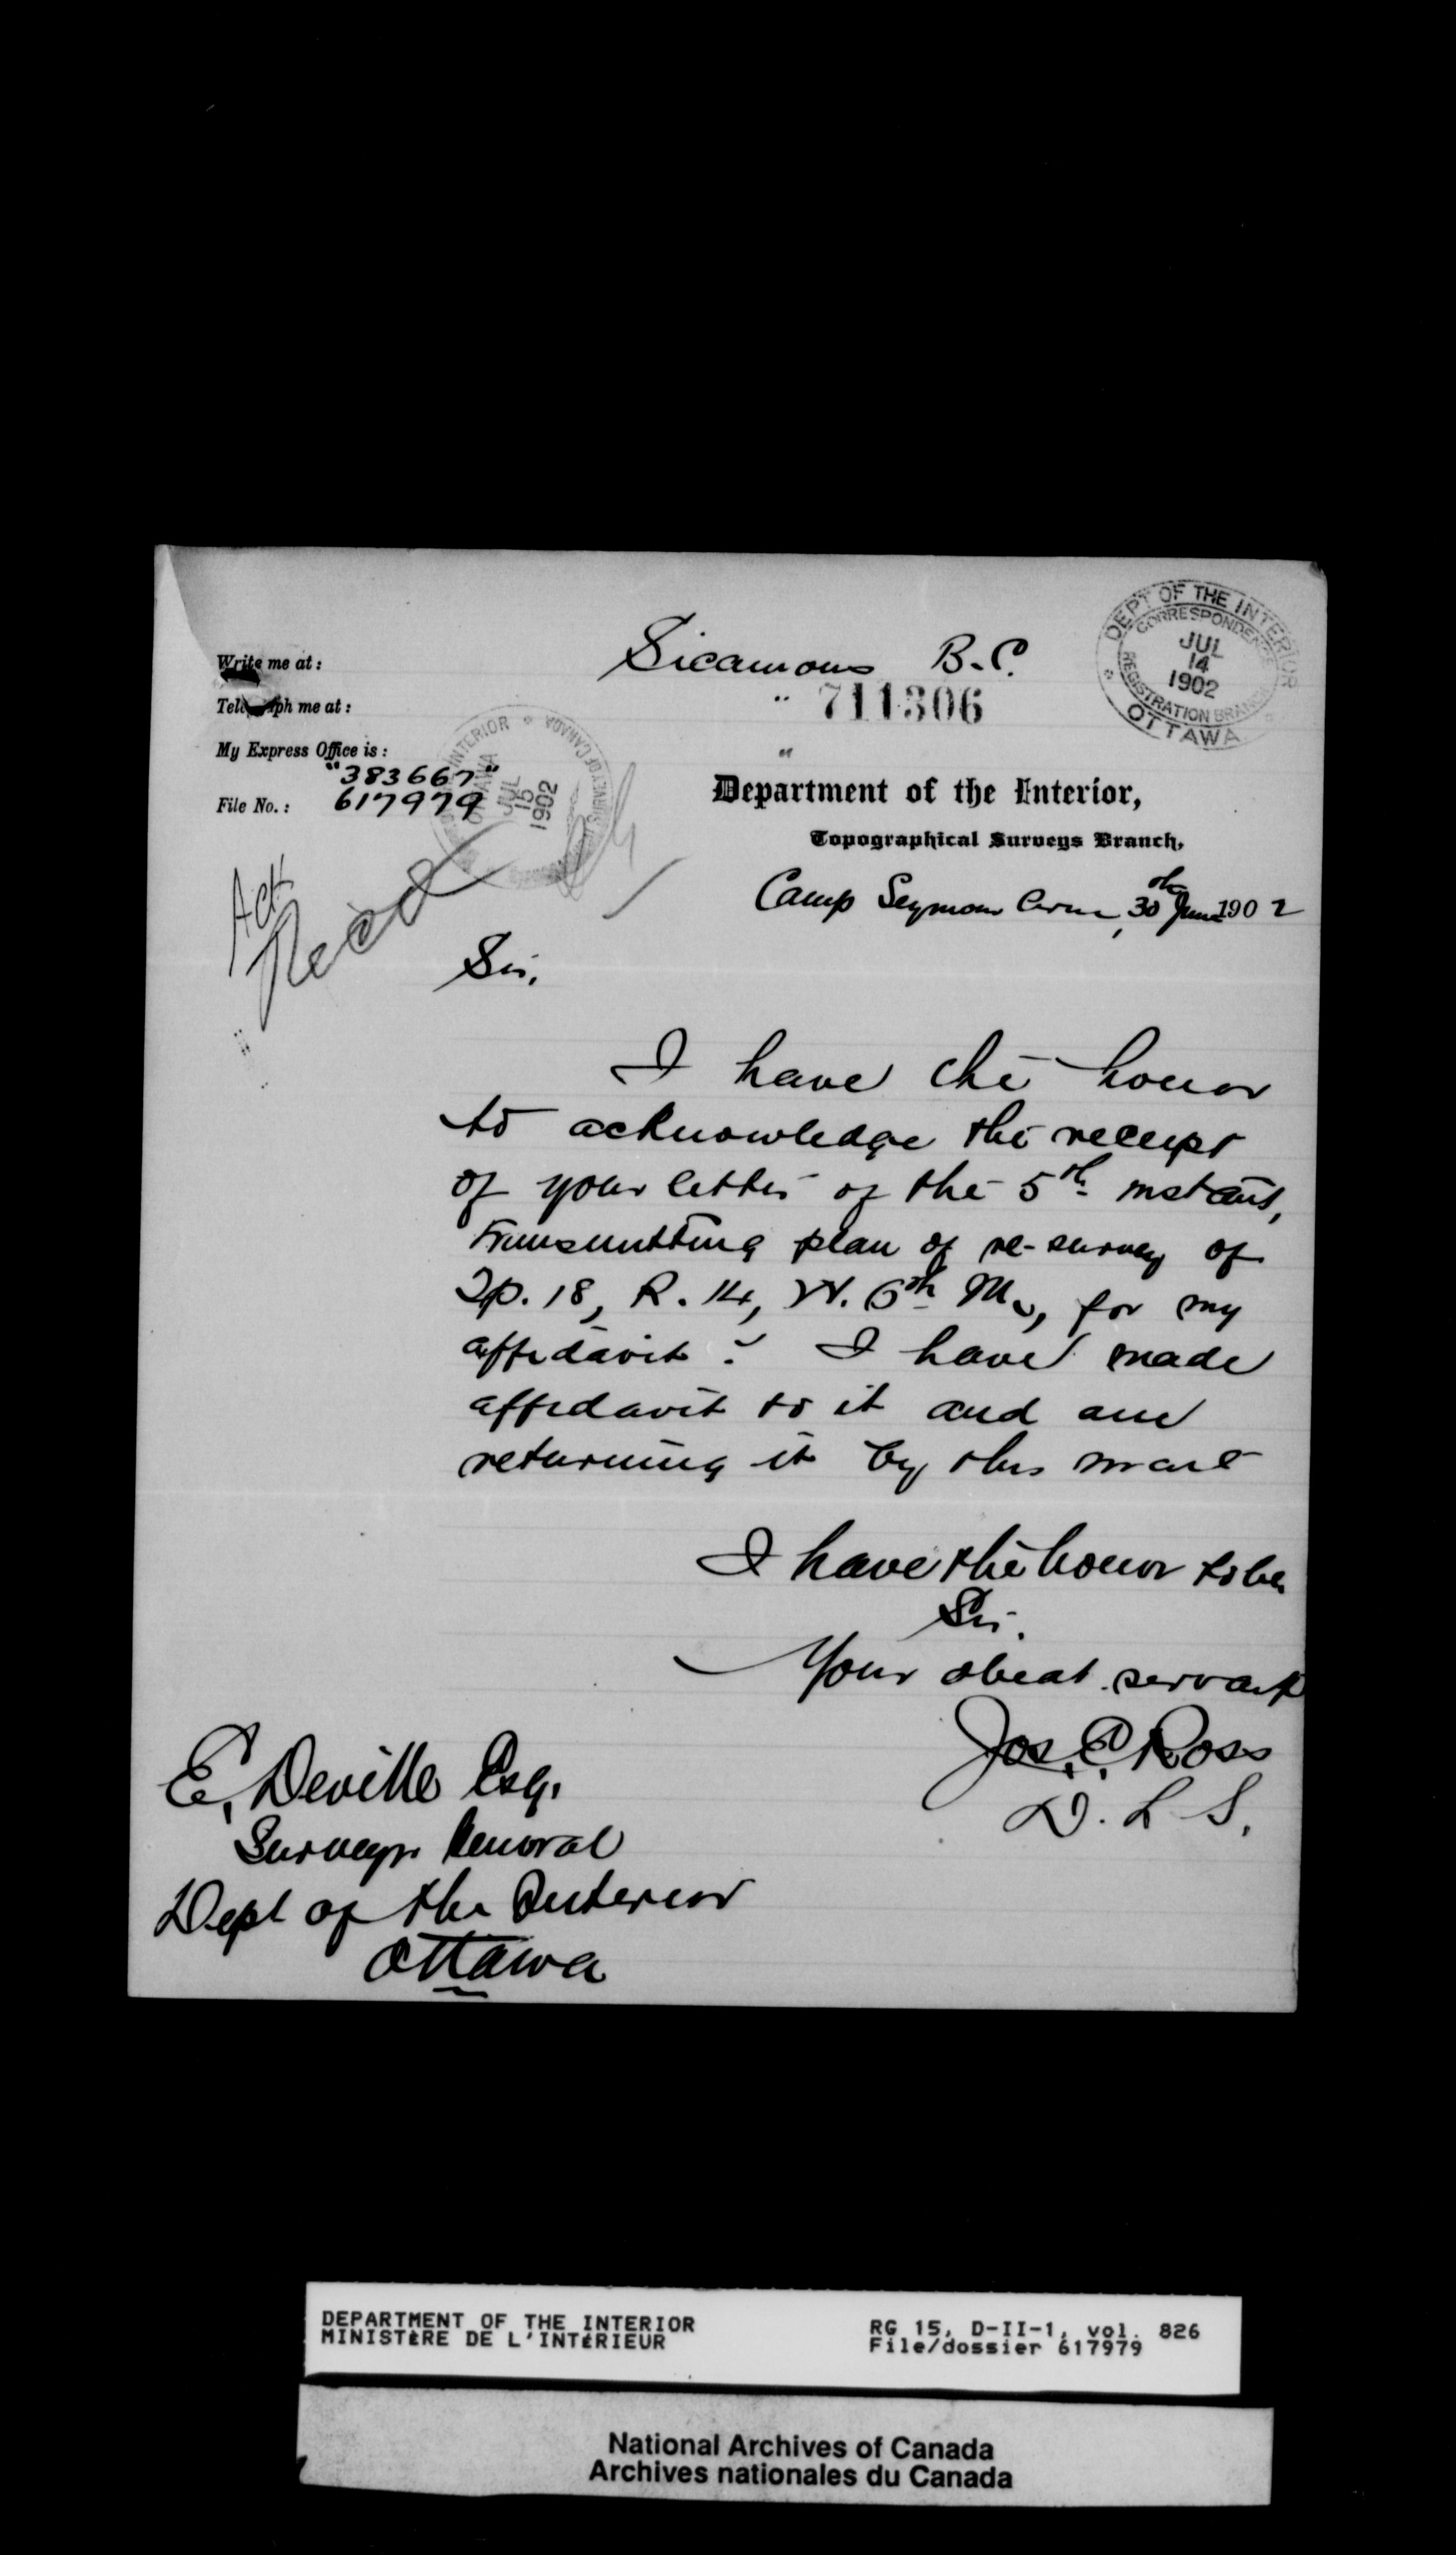 Write me at :
Sicamous B.C.
DEPT OF THE INTERIOR
CORRESPONDENCE
JUL
14
1902
REGISTRATION BRANCH
OTTAWA
Telegraph me at :
" 711306
My Express Office is :
"
"383667"
File No. : 617979
INTERIOR
OTTAWA
JUL
15
1902
SURVEYS
OF CANADA
Department of the Interior,
Topographical Surveys Branch,
Camp Seymour Arm, 30th June 1902
Ack
Recd
Sir,
I have the honor
to acknowledge the receipt
of your letter of the 5th instant,
transmitting plan of re-survey of
Tp. 18, R. 14, W. 6th M., for my
affidavit. I have made
affidavit to it and am
returning it by this mail
I have the honor to be
Sir.
Your obedt. servant
Jos. E. Ross
D. L. S.
E. Deville Esq.
Surveyor General
Dept of the Interior
Ottawa
DEPARTMENT OF THE INTERIOR
MINISTÈRE DE L'INTÉRIEUR
RG 15, D-II-1, vol. 826
File/dossier 617979
National Archives of Canada
Archives nationales du Canada